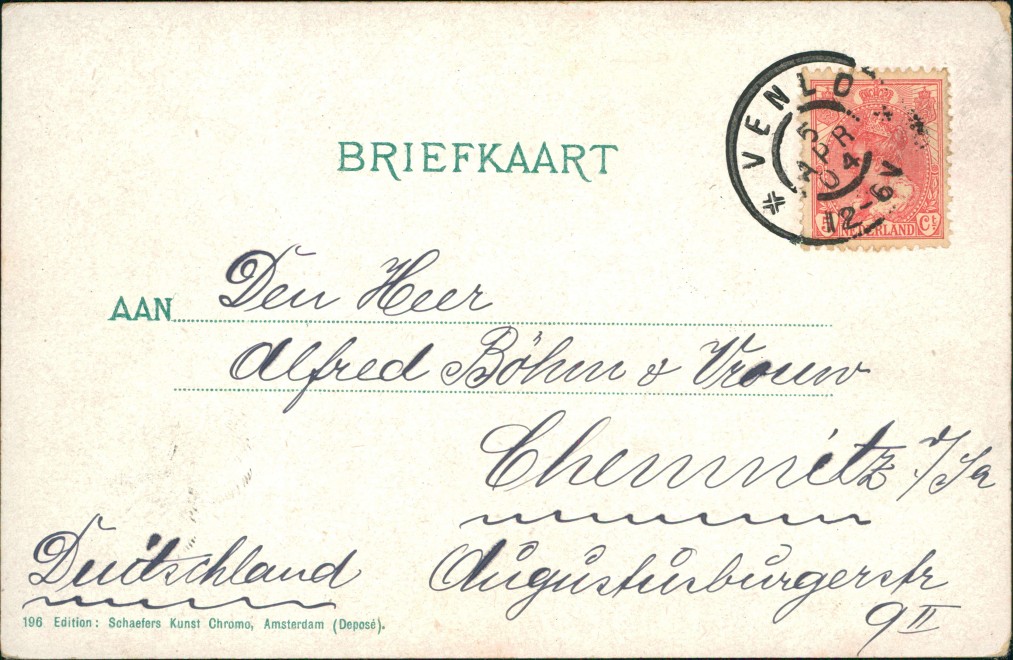 BRIEFKAART
VENLO
5
APR
04
12-6V
5 NEDERLAND Ct
AAN Den Heer
Alfred Böhm & Vrouw
Chemnitz i/Sa
Deutschland
Augustusburgerstr
9 II
196 Edition: Schaefers Kunst Chromo, Amsterdam (Deposé).